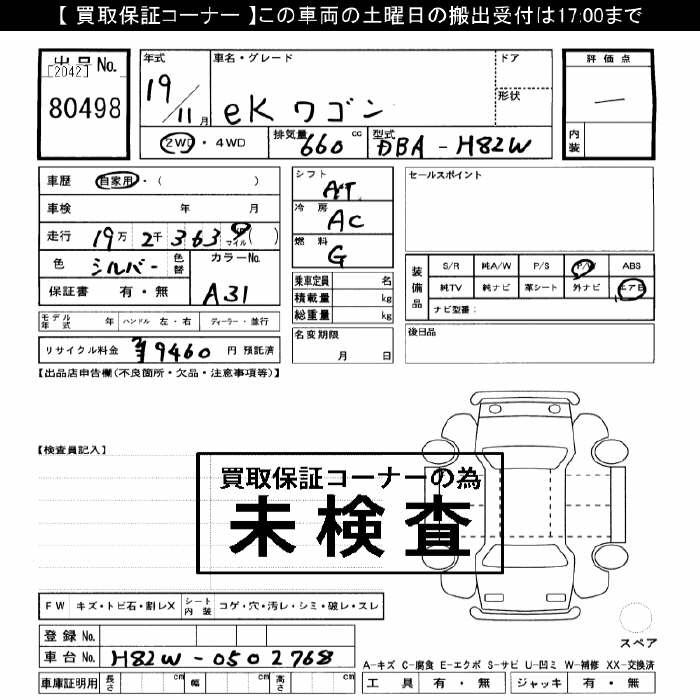 【 買取保証コーナー 】この車両の土曜日の搬出受付は17:00まで
出品No.
[2042]
80498
年式
19/11月
車名・グレード
eKワゴン
ドア
形状
評価点
—
内装
2WD・4WD
排気量 660 cc
型式 DBA-H82W
車歴 自家用・( )
車検 年 月
走行 19万 2千 363 マイル( )
色 シルバー 色替
カラーNo. A31
保証書 有・無
シフト AT
冷房 AC
燃料 G
乗車定員 名
積載量 kg
総重量 kg
名変期限
月 日
セールスポイント
装備品
S/R 純A/W P/S P/W ABS
純TV 純ナビ 革シート 外ナビ エアB
ナビ型番：
後日品
モデル年式 年 ハンドル 左・右 ディーラー・並行
リサイクル料金 ¥9460 円 預託済
【出品店申告欄(不良箇所・欠品・注意事項等)】
【検査員記入】
買取保証コーナーの為
未検査
FW キズ・トビ石・割レX シート内装 コゲ・穴・汚レ・シミ・破レ・スレ
登録No.
車台No. H82W-0502768
車庫証明用 長さ cm 幅 cm 高さ cm
スペア
A-キズ C-腐食 E-エクボ S-サビ U-凹ミ W-補修 XX-交換済
工具 有・無 ジャッキ 有・無